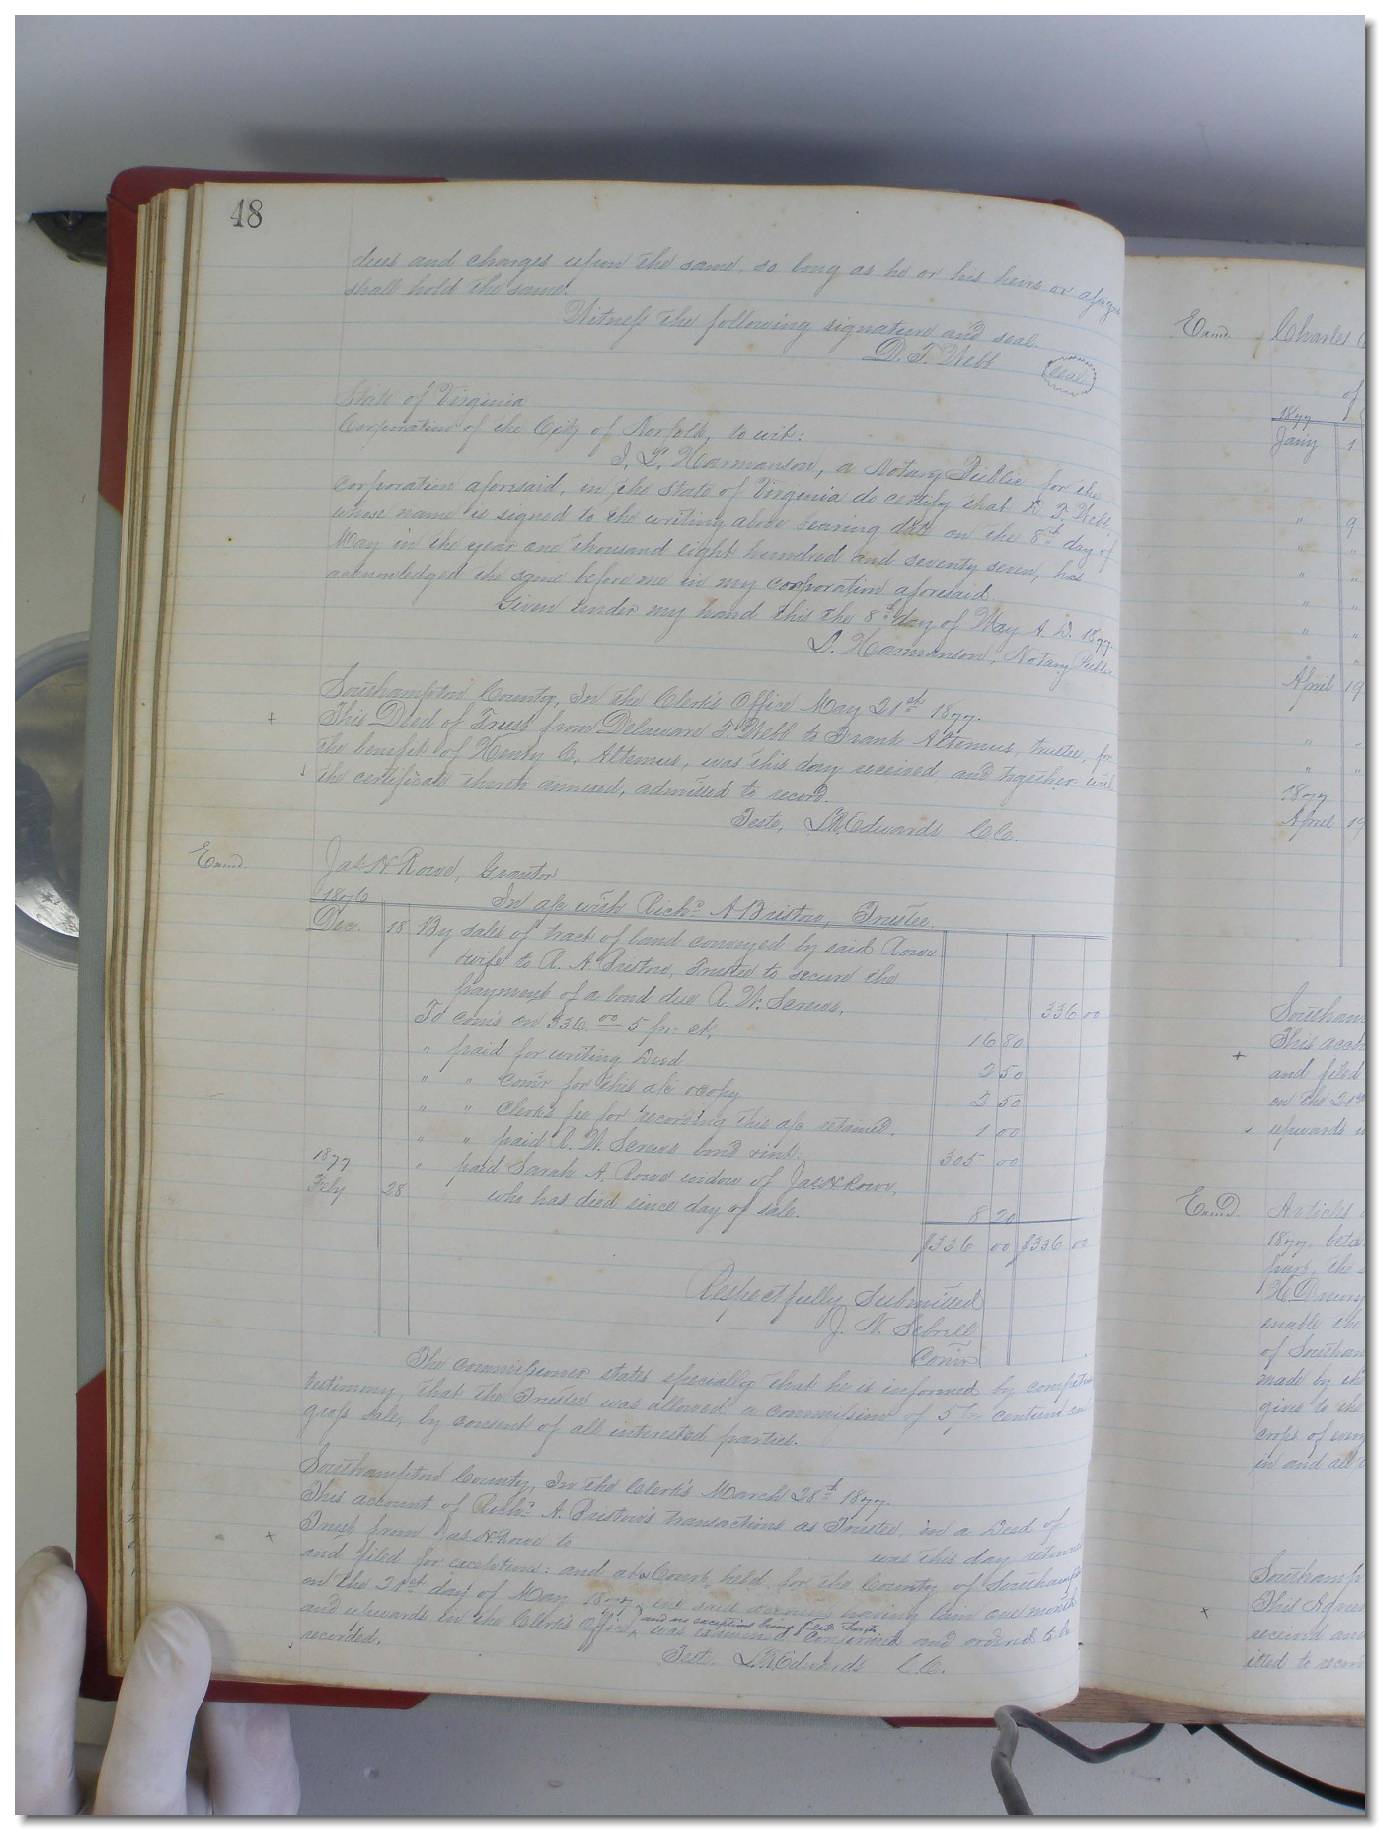 48
dues and charges upon the same, so long as he or his heirs or assigns
shall hold the same.
Witness the following signature and seal.
D. T. Webb seal
State of Virginia
Corporation of the City of Norfolk, to wit:
I, L. Harmanson, a Notary Public for the
corporation aforesaid, in the State of Virginia do certify that D. T. Webb,
whose name is signed to the writing above bearing date on the 8th day of
May in the year one thousand eight hundred and seventy seven, has
acknowledged the same before me in my corporation aforesaid.
Given under my hand this the 8th day of May A. D. 1877.
L. Harmanson, Notary Public
Southampton County, In the Clerk's Office May 21st 1877.
This Deed of Trust from Delaware T. Webb to Frank Altemus, trustee, for
the benefit of Henry C. Altemus, was this day received and together with
the certificate thereto annexed, admitted to record.
Teste, L.R. Edwards C.C.
Exmd.
Jas. N Rowe, Grantor
1876 In a/c with Richd. A Bristow, Trustee.
Dec. 18 By sales of tract of land conveyed by said Rowe
wife to R. A. Bristow, Trustee to secure the
payment of a bond due R. W. 336 00
To coms on 336.00 5 pr. ct. 16 80
" paid for writing Deed 2 50
" " Comr for this a/c & copy 2 50
" " Clerk's fee for recording this a/c retained. 1 00
" " paid R. W. bond & int. 305 00
1877 " paid Sarah A. Rowe widow of Jas. N Rowe,
Feby 28 who has died since day of sale. 8 20
$336 00 $336 00
Respectfully Submitted
J. N. Sebrell
Comr
The commissioner states specially that he is informed by competent
testimony, that the Trustee was allowed a commission of 5 per centum on
gross sale, by consent of all interested parties.
Southampton County, In the Clerk's March 28th 1877.
This account of Richd. A. Bristow's transactions as Trustee, in a Deed of
Trust from Jas. N. Rowe to was this day returned
and filed for exceptions: and at a Court held for the County of Southampton
on the 21st day of May 1877, the said account having lain one month
and upwards in the Clerk's Office, and no exceptions being filed thereto was examined confirmed and ordered to be
recorded.
Teste. L.R. Edwards C.C.
Exmd. Charles
of
1877
Jany 1
" 9
" "
" "
" "
" "
April 19
" "
" "
1877
April 19
Southam
This acco
and filed
on the 21st
upwards
Exmd. Articles
1877, betw
pars, the
H Drury
enable the
of Southam
made by th
gives to the
crops of
in and all
Southamp
This Agree
received and
itted to record